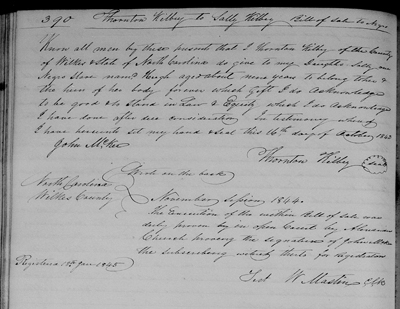 390 Thornton Kilbey to Sally Kilbey Bill of Sale to Negro
Know all men by these presents that I Thornton Kilbey of the County
of Wilkes & State of North Carolina do give to my Daughter Sally one
Negro Slave named Hugh aged about nine years to belong to her &
the heirs of her body forever which Gift I do Acknowledge
to be good & to Stand in Law & Equity which I do Acknowledge
I have done after due consideration in testimony whereof
I have hereunto set my hand & Seal this 16th day of October 1843
John McKee
Thornton Kilbey Seal
on the back
North Carolina
Wilkes County
November Session 1844.
The Execution of the within Bill of Sale was
duly proven by in open Court by
Church proving the signature of John McKee
the subscribing witness thereto for Registration
Registered 15th Jany 1845
Test W Mastin Clk